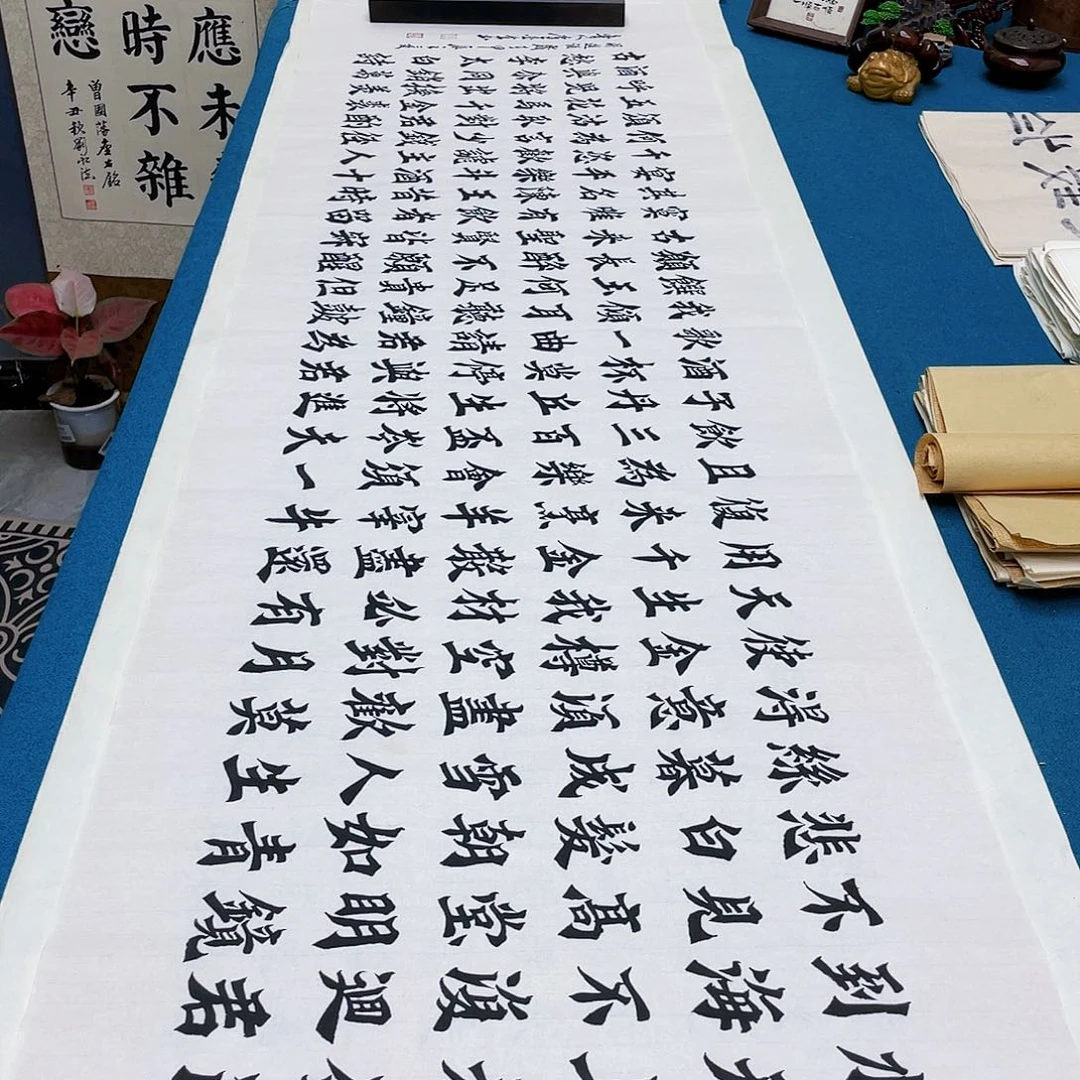 應未
時不雜
戀
曾國藩座右銘
辛丑秋
到海不復迴君
不見高堂明鏡
悲白髮朝如青
絲暮成雪人生
得意須盡歡莫
使金樽空對月
天生我材必有
用千金散盡還
復來烹羊宰牛
且為樂會須一
飲三百杯岑夫
子丹丘生將進
酒杯莫停與君
歌一曲請君為
我傾耳聽鐘鼓
饌玉何足貴但
願長醉不願醒
古來聖賢皆寂
寞惟有飲者留
其名陳王昔時
宴平樂斗酒十
千恣歡謔主人
何為言少錢徑
須沽取對君酌
五花馬千金裘
呼兒將出換美
酒與爾同銷萬
古愁李太白詩